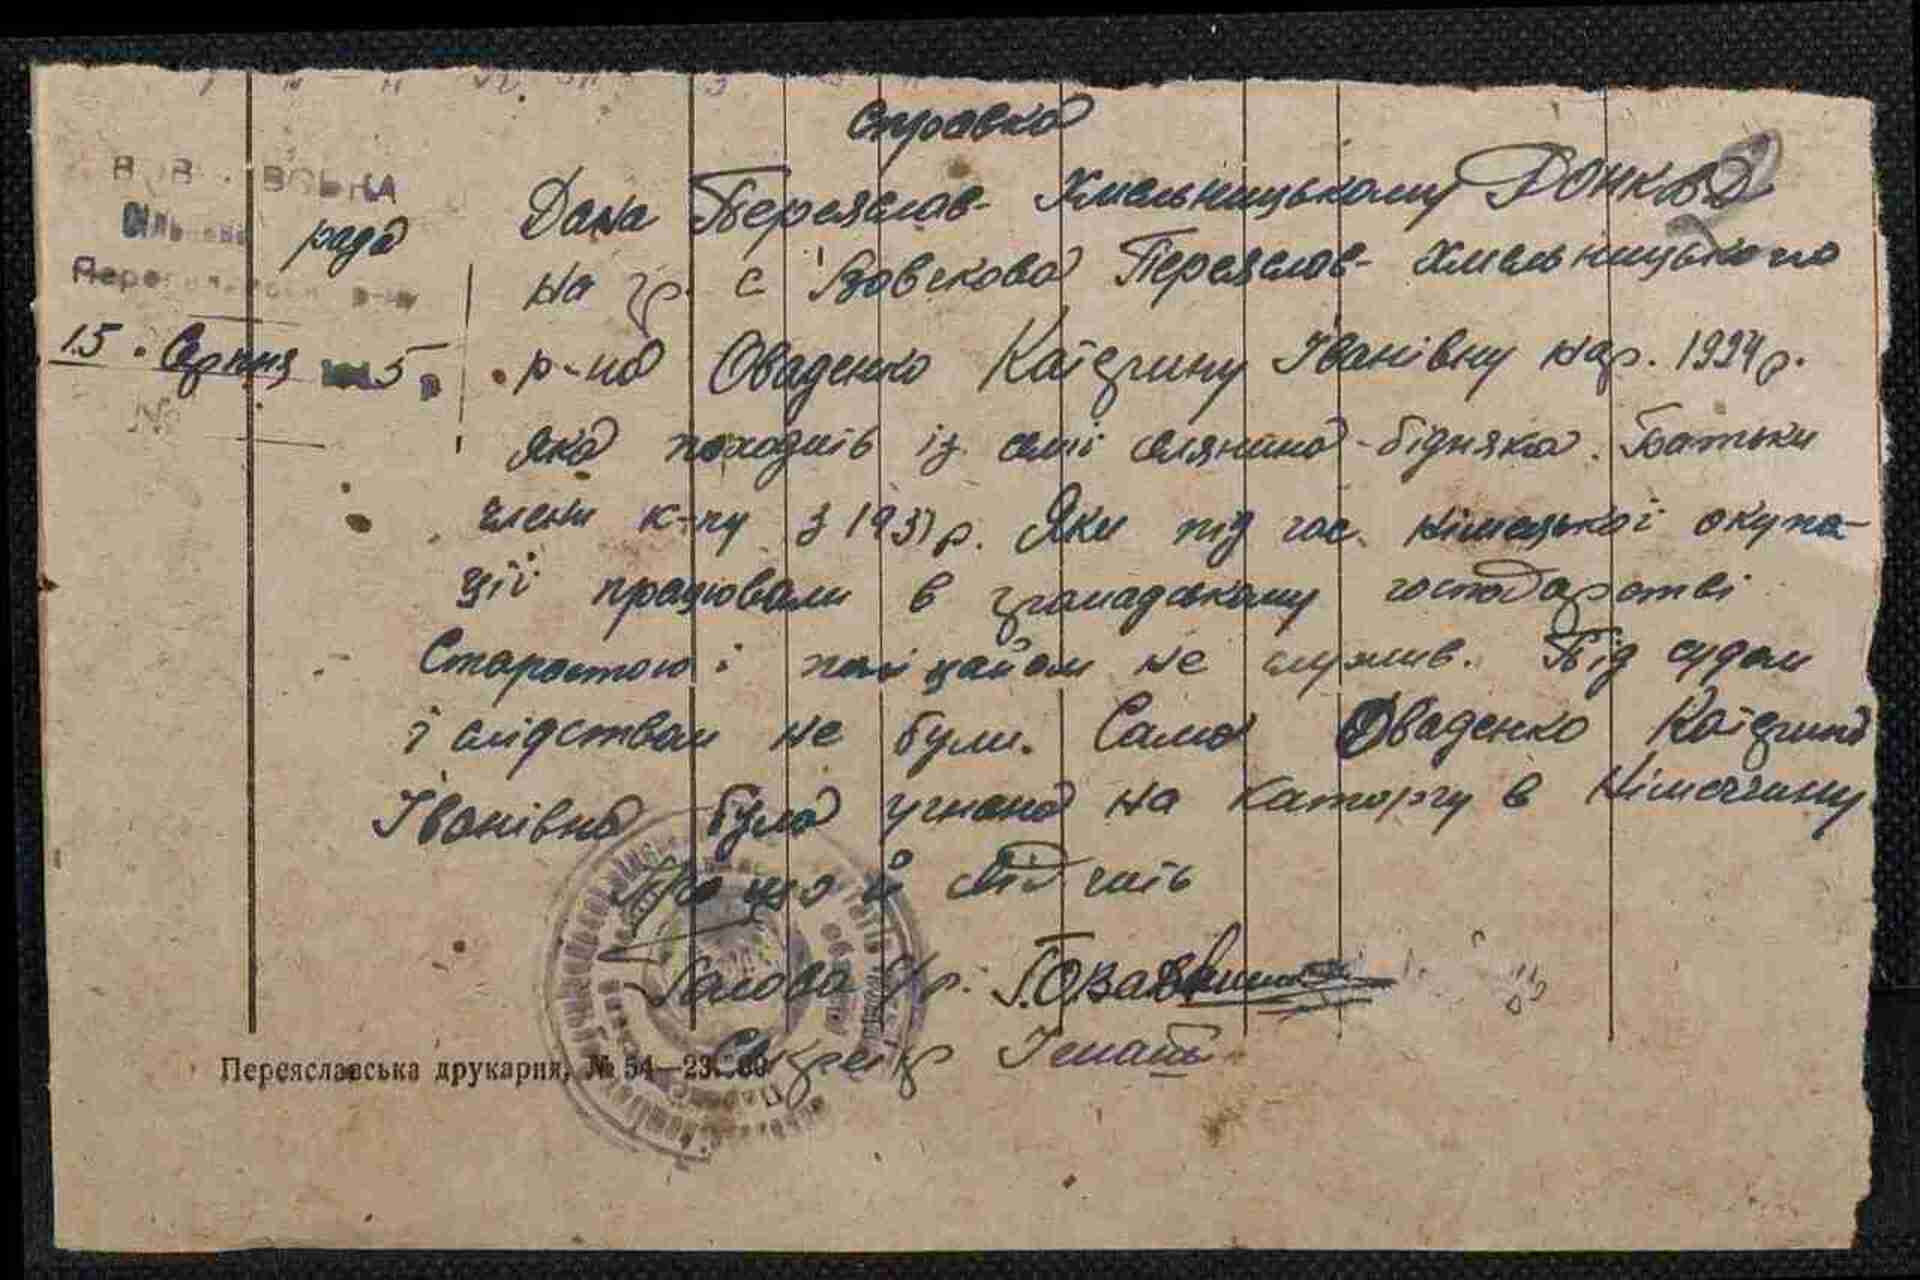 Справка
Дана Переяслав- Хмельницькому РОНКВД
на гр. с Вовчкова Переяслав- Хмельницького
р-на Оваденко Катерину Іванівну нар. 1924 р.
яка походить із сімі селянина-бідняка. Батьки
члени к-пу з 1931 р. Яки під час німецької окупа-
ції працювали в громадському господарстві
Старостою і поліцайом не служив. Під судом
і слідством не були. Сама Оваденко Катерина
Іванівна була угнана на каторгу в Німеччину
Про що й свідчить
Голова с/р.
Секретар
рада
15. Серпня 5 р
№
Переяславська друкарня, № 54—23